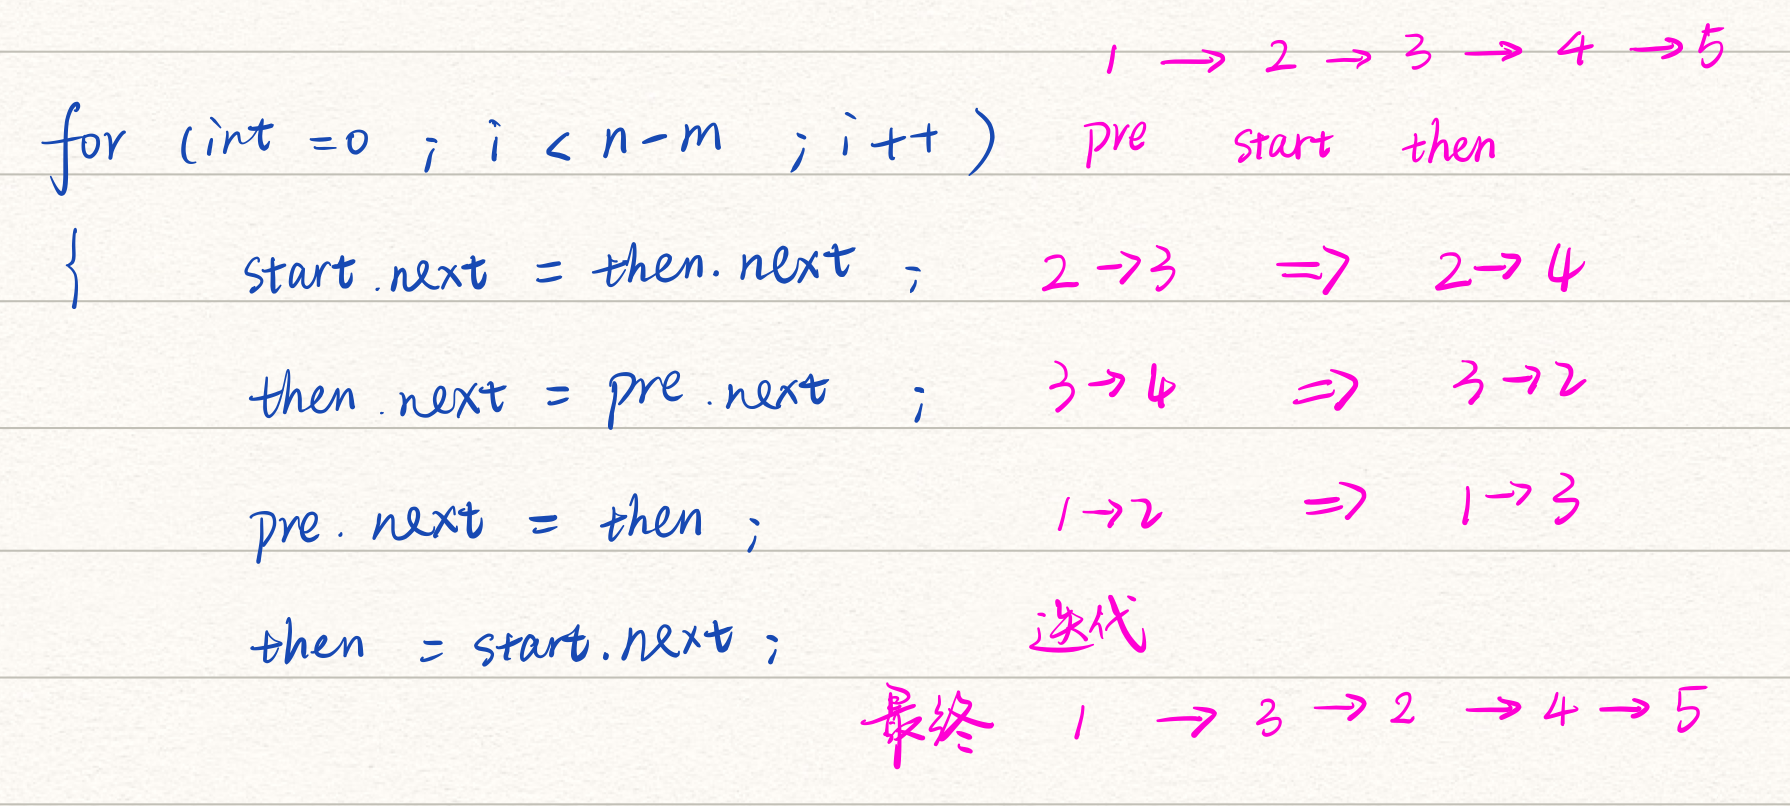 1 → 2 → 3 → 4 → 5
for (int =0 ; i < n-m ; i++) pre start then
{ start.next = then.next ; 2→3 ⇒ 2→4
then.next = pre.next ; 3→4 ⇒ 3→2
pre.next = then ; 1→2 ⇒ 1→3
then = start.next ; 迭代
最终 1 → 3 → 2 → 4 → 5